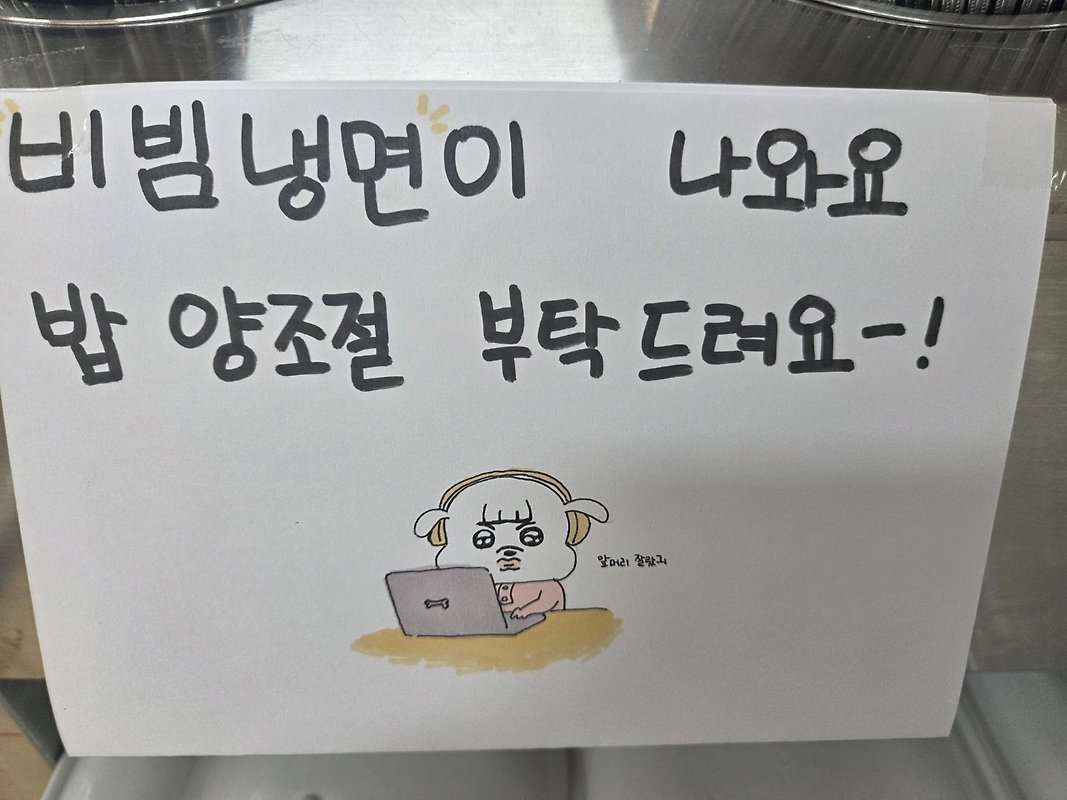 비빔냉면이 나와요
밥 양조절 부탁드려요-!
앞머리 잘랐귀